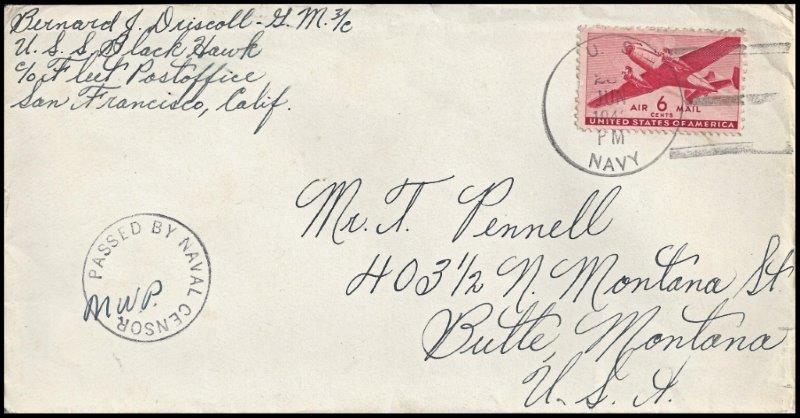 Bernard J. Driscoll - G.M. 3/c
U.S.S. Black Hawk
c/o Fleet Postoffice
San Francisco, Calif.
U. S.
PM
NAVY
AIR 6 MAIL
CENTS
UNITED STATES OF AMERICA
Mr. T. Pennell
403 1/2 N. Montana St.
Butte, Montana
U. S. A.
PASSED BY NAVAL CENSOR
M.W.P.